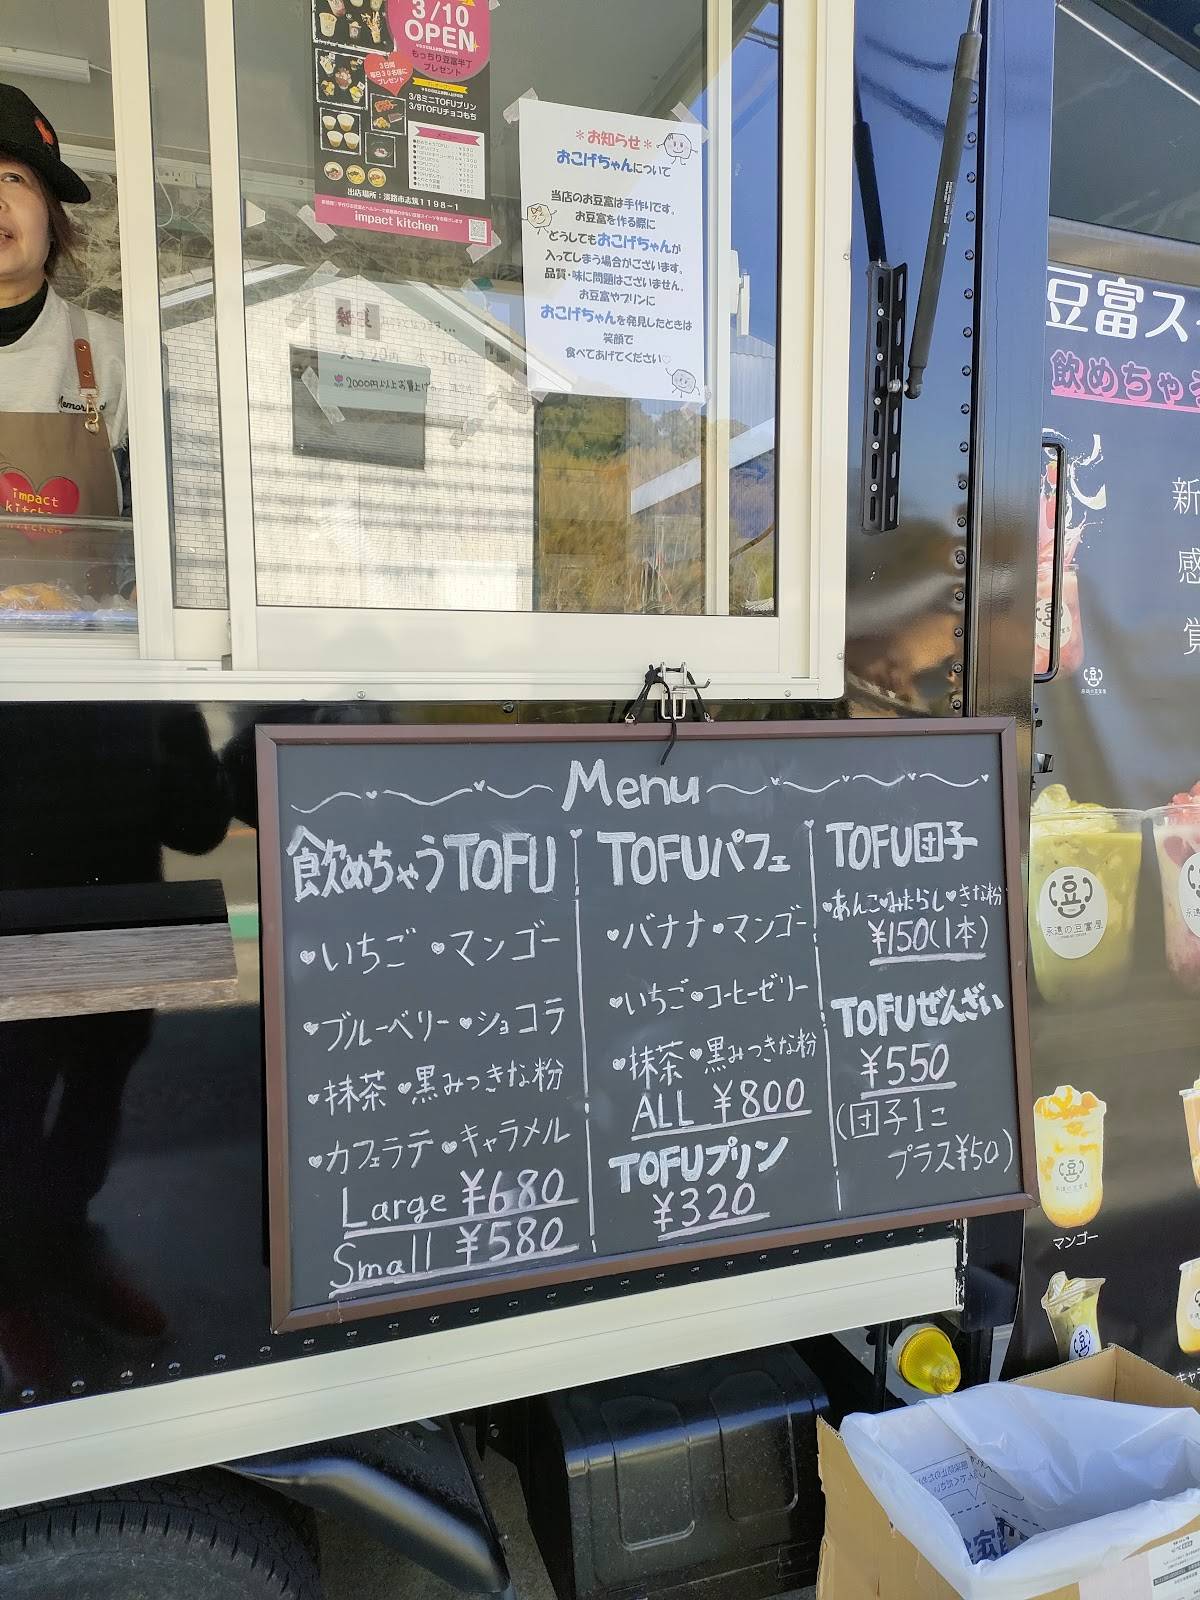 3/10
OPEN
もっちり豆富半丁
プレゼント
3日間
毎日30名様に
プレゼント
3/8ミニTOFUプリン
3/9TOFUチョコもち
メニュー
出店場所：淡路市志筑1198-1
impact kitchen
＊お知らせ＊
おこげちゃんについて
当店のお豆富は手作りです。
お豆富を作る際に
どうしてもおこげちゃんが
入ってしまう場合がございます。
品質・味に問題はございません。
お豆富やプリンに
おこげちゃんを発見したときは
笑顔で
食べてあげてください♡
2000円以上お買上げ
impact
kitchen
豆富ス
飲めちゃう
新
感
覚
Menu
飲めちゃうTOFU
♥いちご ♥マンゴー
♥ブルーベリー ♥ショコラ
♥抹茶 ♥黒みつきな粉
♥カフェラテ ♥キャラメル
Large ¥680
Small ¥580
TOFUパフェ
♥バナナ ♥マンゴー
♥いちご ♥コーヒーゼリー
♥抹茶 ♥黒みつきな粉
ALL ¥800
TOFUプリン
¥320
TOFU団子
♥あんこ ♥みたらし ♥きな粉
¥150(1本)
TOFUぜんざい
¥550
(団子1こ
プラス¥50)
豆
永遠の豆富屋
マンゴー
キャラ